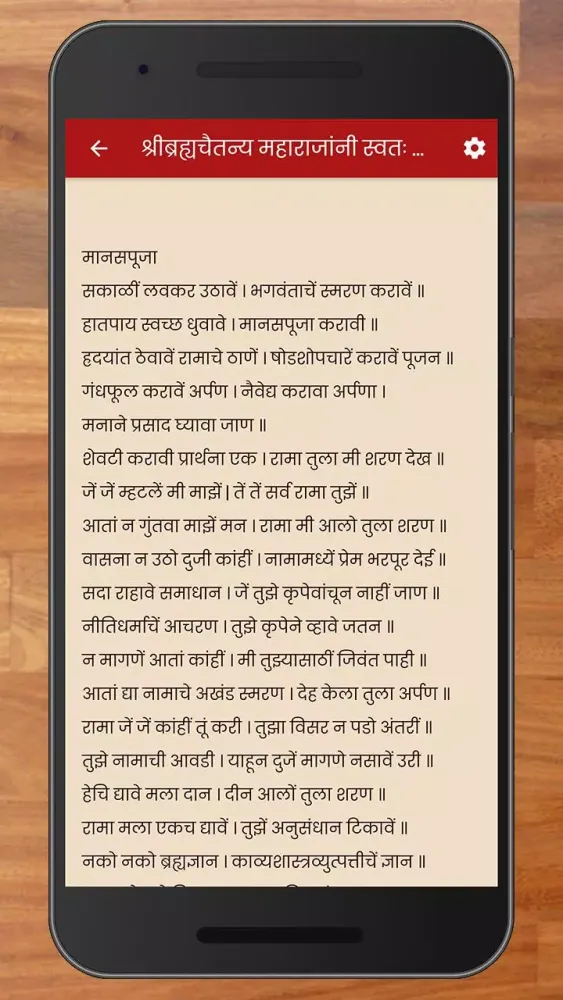 श्रीब्रह्मचैतन्य महाराजांनी स्वतः ...
मानसपूजा
सकाळीं लवकर उठावें । भगवंताचें स्मरण करावें ॥
हातपाय स्वच्छ धुवावे । मानसपूजा करावी ॥
हृदयांत ठेवावें रामाचे ठाणें । षोडशोपचारें करावें पूजन ॥
गंधफूल करावें अर्पण । नैवेद्य करावा अर्पणा ।
मनाने प्रसाद घ्यावा जाण ॥
शेवटी करावी प्रार्थना एक । रामा तुला मी शरण देख ॥
जें जें म्हटलें मी माझें | तें तें सर्व रामा तुझें ॥
आतां न गुंतवा माझें मन । रामा मी आलो तुला शरण ॥
वासना न उठो दुजी कांहीं । नामामध्यें प्रेम भरपूर देई ॥
सदा राहावे समाधान । जें तुझे कृपेवांचून नाहीं जाण ॥
नीतिधर्माचें आचरण । तुझे कृपेने व्हावे जतन ॥
न मागणें आतां कांहीं । मी तुझ्यासाठीं जिवंत पाही ॥
आतां द्या नामाचे अखंड स्मरण । देह केला तुला अर्पण ॥
रामा जें जें कांहीं तूं करी । तुझा विसर न पडो अंतरीं ॥
तुझे नामाची आवडी । याहून दुजें मागणे नसावें उरी ॥
हेचि द्यावे मला दान । दीन आलों तुला शरण ॥
रामा मला एकच द्यावें । तुझें अनुसंधान टिकावें ॥
नको नको ब्रह्मज्ञान । काव्यशास्त्रव्युत्पत्तीचें ज्ञान ॥